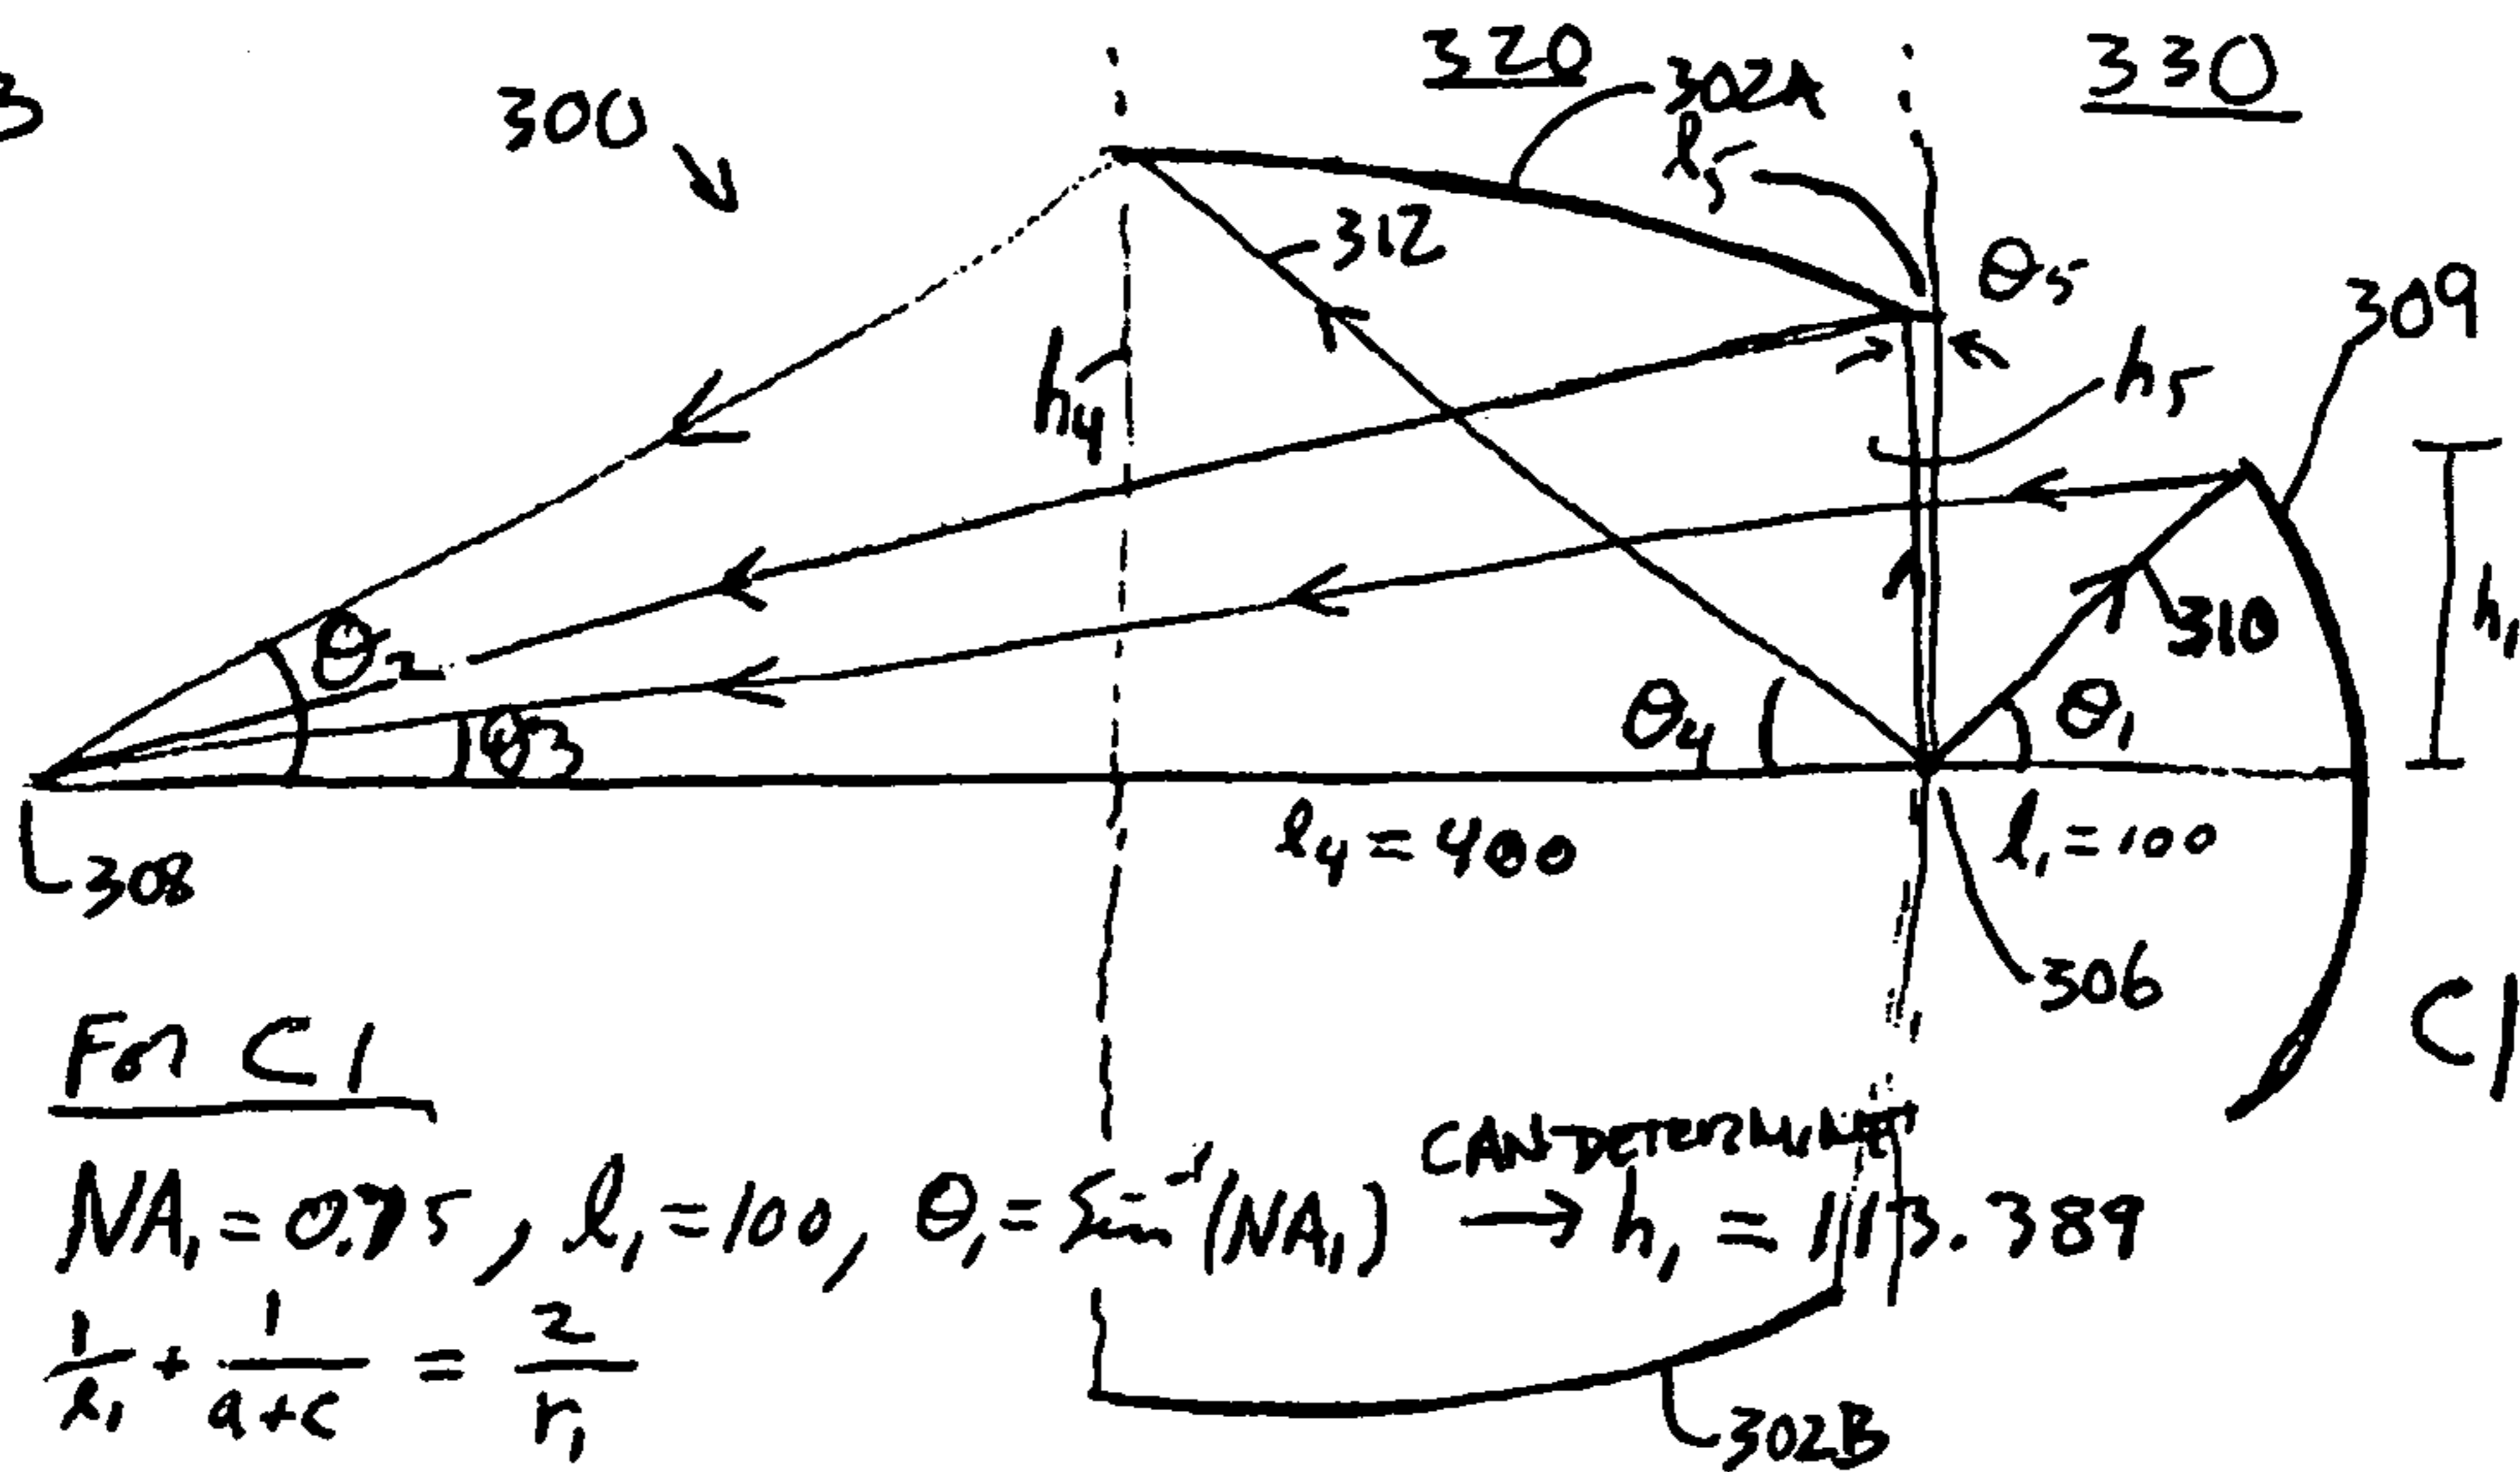 3
300
320
302A
330
l5
312
θ5
309
h4
h5
h1
310
θ2
θ3
θ4
θ1
308
l4 = 400
l1 = 100
306
C1
For C1
CAN DETERMINE
NA1 = 0.75, l1 = 100, θ1 = Sin⁻¹(NA1) → h1 = 113.389
1/l1 + 1/a+c = 2/r1
302B